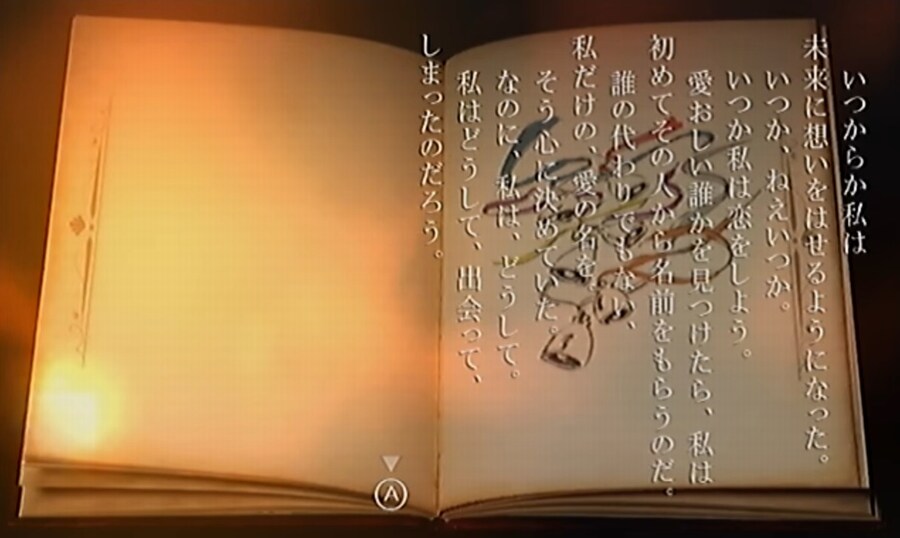 いつからか私は
未来に想いをはせるようになった。
いつか、ねえいつか。
いつか私は恋をしよう。
愛おしい誰かを見つけたら、私は
初めてその人から名前をもらうのだ。
誰の代わりでもない、
私だけの、愛の名を。
そう心に決めていた。
なのに、私は、どうして。
私はどうして、出会って、
しまったのだろう。
A